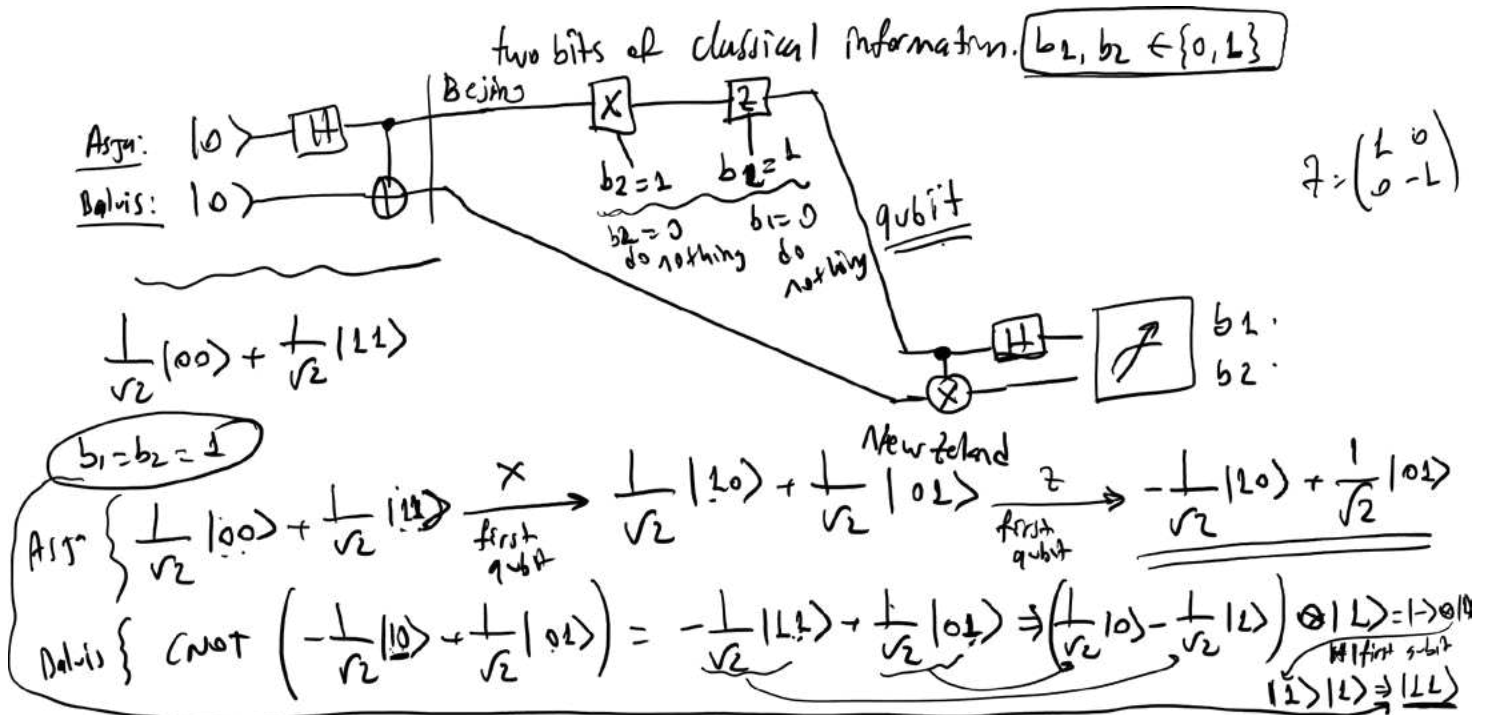 two bits of classical information. b1, b2 ∈ {0, 1}
Bejing
Asja: |0⟩ H X Z
Balvis: |0⟩
b2 = 1 b1 = 1
b2 = 0 do nothing
b1 = 0 do nothing
qubit
Z = (1 0
0 -1)
1/√2 |00⟩ + 1/√2 |11⟩
H
b1
b2
New Zeland
b1 = b2 = 1
Asja { 1/√2 |00⟩ + 1/√2 |11⟩ X first qubit → 1/√2 |10⟩ + 1/√2 |01⟩ Z first qubit → - 1/√2 |10⟩ + 1/√2 |01⟩
Balvis { CNOT ( - 1/√2 |10⟩ + 1/√2 |01⟩ ) = - 1/√2 |11⟩ + 1/√2 |01⟩ ⇒ ( 1/√2 |0⟩ - 1/√2 |1⟩ ) ⊗ |1⟩ = |-⟩ ⊗ |1⟩
H first qubit
|1⟩|1⟩ ⇒ |11⟩